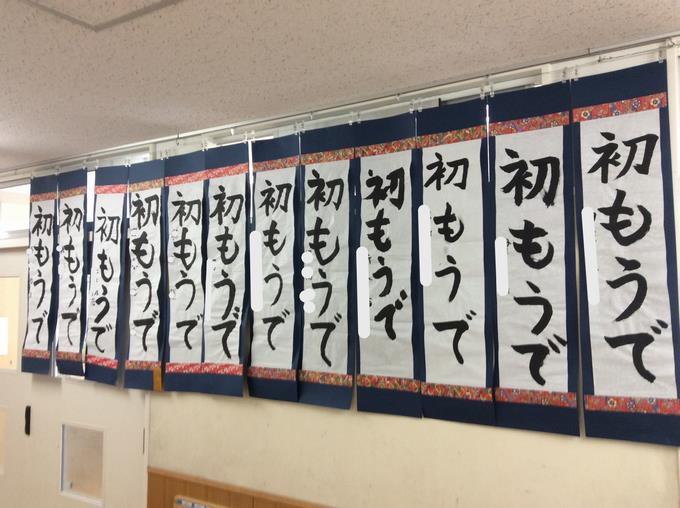 初もうで
初もうで
初もうで
初もうで
初もうで
初もうで
初もうで
初もうで
初もうで
初もうで
初もうで
初もうで